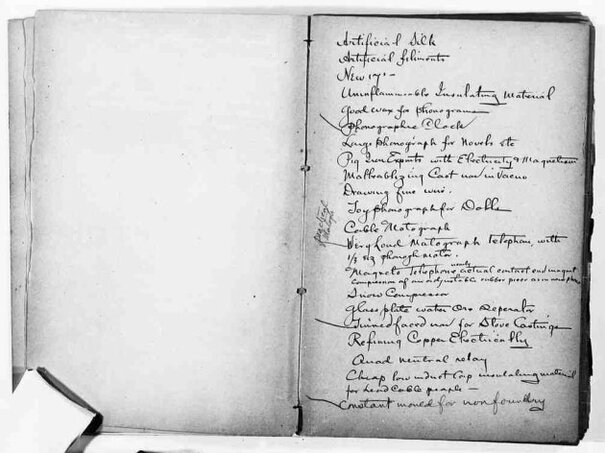 Artificial Silk
Artificial filiments
New
Uninflammable Insulating Material
Good wax for phonograms
Phonographic Clock
Large Phonograph for Novels etc
Pig Iron Expmts with Electricity & Magnetism
Malleablizing Cast iron in Vacuo
Drawing fine wire.
Toy phonograph for Dolls
Cable Motograph
Very Loud Motograph telephone with
1/3 siz phonogh motor.
Magneto telephone actual contact end magnet
compression of an adjustable rubber piece as in new phones
Snow Compressor
Glass plate water Ore Seperator
Tinned faced iron for Stove Castings
Refining Copper Electrically
Quad neutral relay
Cheap low induct Cap insulating material
for Lead Cable people -
Constant mould for iron foundry